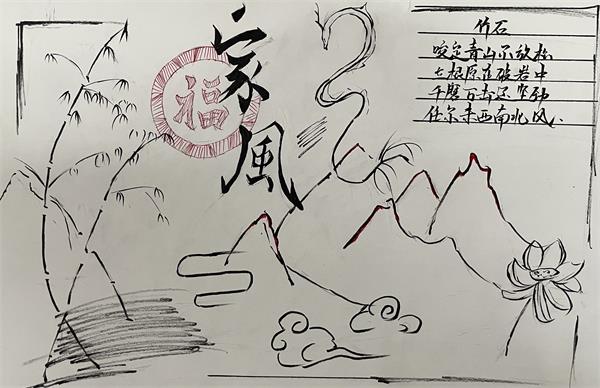 家風
福
竹石
咬定青山不放松
立根原在破岩中
千磨百击还坚劲
任尔东西南北风.